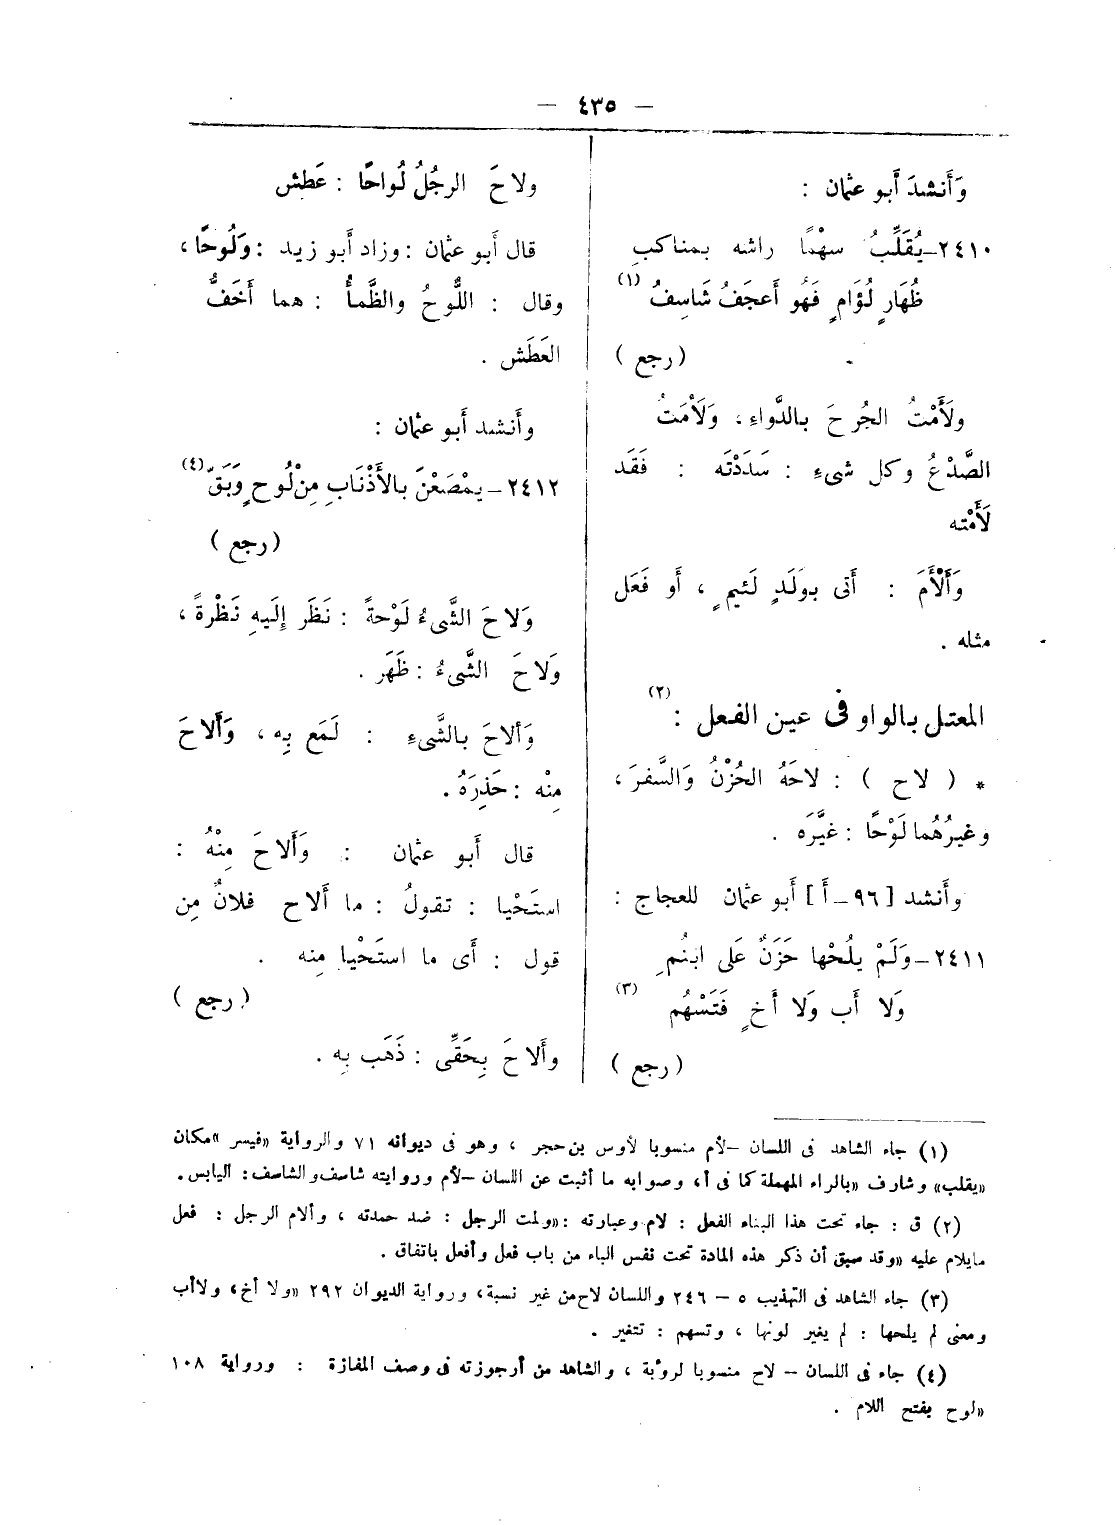 — ٤٣٥ —
وَأَنشدَ أَبو عثمان :
٢٤١٠ـ يُقَلِّبُ سهْمًا راشه بمناكب
ظُهَارٍ لُؤَامٍ فَهُو أَعجَفُ شَاسِفُ (١)
( رجع )
ولَأَمْتُ الجُرحَ بالدَّواءِ ، وَلَأمَتُ
الصَّدْعُ وكل شىءِ : سَدَدْتَه : فَقَد
لَأَمْته
وَأَلْأَمَ : أَتى بوَلَدٍ لَئيمٍ ، أَو فَعَل
مثله .
المعتل بالواو فى عين الفعل : (٢)
* ( لاح ) : لاحَهُ الحُزْنُ وَالسَّفَرَ ،
وغيرُهُما لَوْحًا : غيَّرَه .
وأَنشد [ ٩٦ ـ أَ ] أَبو عثمان للعجاج :
٢٤١١ـ وَلَمْ يلُحْها حَزَنٌ عَلى ابنُمِ
وَلا أَب وَلَا أَخٍ فَتَسْهُم (٣)
( رجع )
ولاحَ الرجُلُ لُواحًا : عَطش
قال أَبو عثمان : وزاد أَبو زيد : وَلُوحًا ،
وقال : اللُّوحُ والظَّمأُ : هما أَخَفُّ
العَطَش .
وأَنشد أَبو عثمان :
٢٤١٢ـ يمْصَعْنَ بالأَذْنَابِ مِنْ لُوحٍ وَبَقّ (٤)
( رجع )
وَلاحَ الشَّىءُ لَوْحةً : نَظَر إِلَيهِ نَظْرةً ،
وَلاحَ الشَّىءُ : ظَهَر .
وَألاحَ بالشَّىءِ : لَمَع بِه ، وَأَلاحَ
مِنْه : حَذِرَهُ .
قال أَبو عثمان : وَأَلاحَ مِنْهُ :
استَحْيا : تقولُ : ما أَلاح فلانٌ مِن
قول : أَى ما استَحْيا مِنه .
( رجع )
وأَلاحَ بِحَقِّى : ذَهَب بِه .
(١) جاء الشاهد فى اللسان – لأم منسوبا لأوس بن حجر ، وهو فى ديوانه ٧١ والرواية «فيسر» مكان
«يقلب» وشارف «بالراء المهملة كما فى أ، وصوابه ما أثبت عن اللسان – لأم وروايته شاسف والشاسف : اليابس .
(٢) ق : جاء تحت هذا البناء الفعل : لام وعبارته : «ولمت الرجل : ضد حمدته ، وألام الرجل : فعل
مايلام عليه «وقد سبق أن ذكر هذه المادة تحت نفس الباء من باب فعل وأفعل باتفاق .
(٣) جاء الشاهد فى التهذيب ٥ – ٢٤٦ واللسان لاح من غير نسبة، ورواية الديوان ٢٩٢ «ولا أخ، ولا أب
ومعنى لم يلحها : لم يغير لونها ، وتسهم : تتغير .
(٤) جاء فى اللسان – لاح منسوبا لرؤبة ، والشاهد من أرجوزته فى وصف المفازة : ورواية ١٠٨
«لوح بفتح اللام .